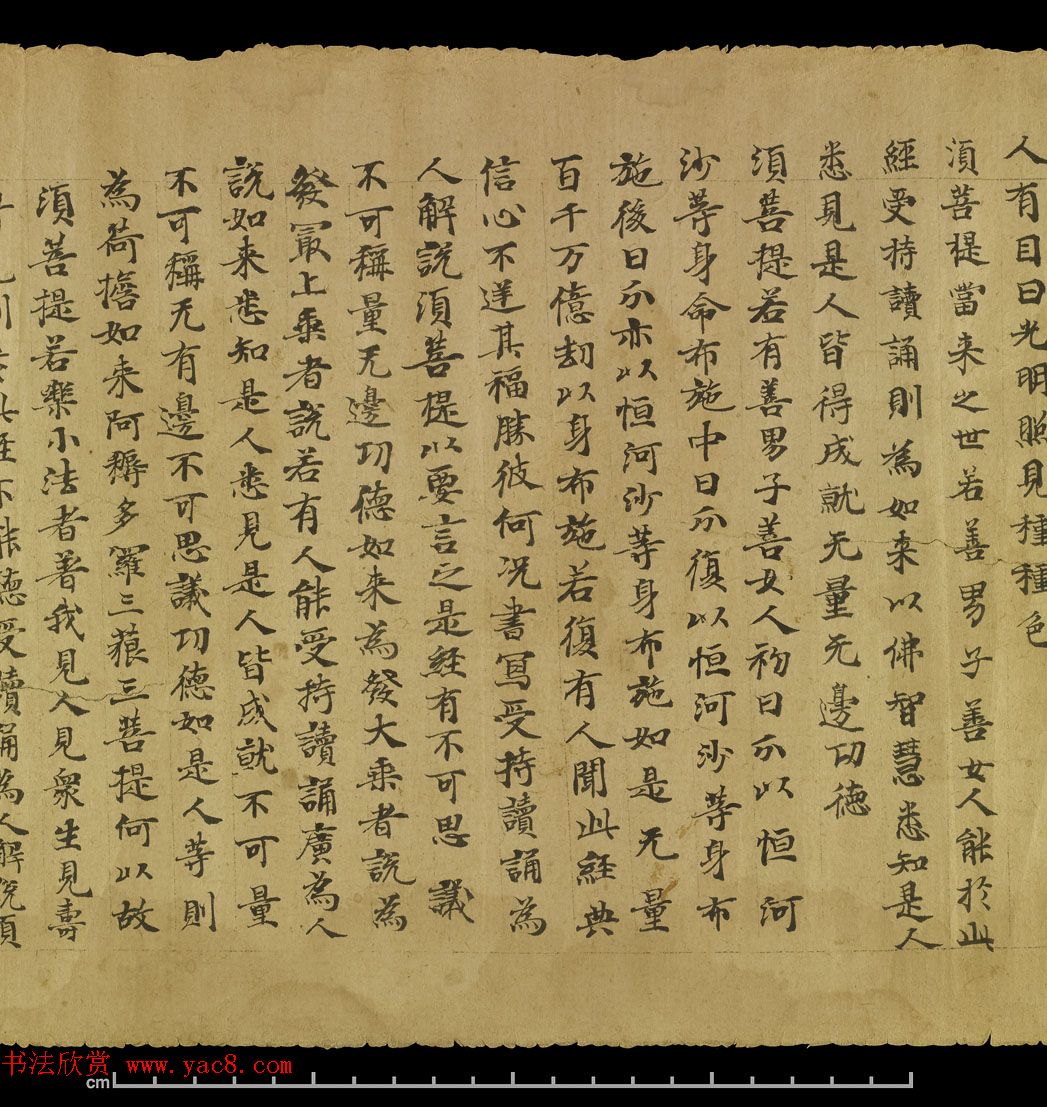 人有目日光明照見種種色
湏菩提當来之世若善男子善女人能於此
經受持讀誦則為如来以佛智慧悉知是人
悉見是人皆得成就无量无邊功德
湏菩提若有善男子善女人初日分以恒河
沙等身命布施中日分復以恒河沙等身布
施後日分亦以恒河沙等身布施如是无量
百千万億劫以身布施若復有人聞此經典
信心不逆其福勝彼何况書寫受持讀誦為
人解説湏菩提以要言之是經有不可思議
不可稱量无邊功德如来為發大乘者説為
發冣上乘者説若有人能受持讀誦廣為人
説如来悉知是人悉見是人皆成就不可量
不可稱无有邊不可思議功德如是人等則
為荷擔如来阿耨多羅三藐三菩提何以故
湏菩提若樂小法者著我見人見衆生見壽
則於此經不能聽受讀誦為人解説湏
书法欣赏 www.yac8.com
cm